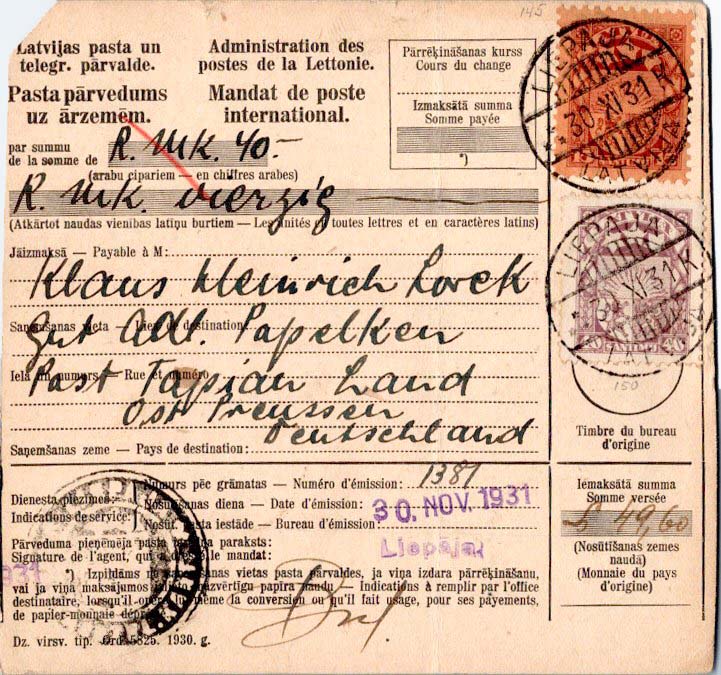 145
Latvijas pasta un
telegr. pārvalde.
Administration des
postes de la Lettonie.
Pasta pārvedums
uz ārzemēm.
Mandat de poste
international.
Pārrēķināšanas kurss
Cours du change
Izmaksātā summa
Somme payée
*)
LIEPAJA
30 XI 31 K
LATVIJA
par summu
de la somme de R. MK. 40.-
(arabu cipariem — en chiffres arabes)
R. MK. vierzig
(Atkārtot naudas vienības latiņu burtiem — Les unités en toutes lettres et en caractères latins)
Jāizmaksā — Payable à M:
Klaus Heinrich Lorek
Saņemšanas vieta — Lieu de destination:
Gut Adl. Papelken
Iela un numurs — Rue et numéro
Post Tapiau Land
Ost Preussen
Deutschland
Saņemšanas zeme — Pays de destination:
LIEPAJA
XI 31 K
40 SANTIMU 40
150
Timbre du bureau
d'origine
Dienesta piezīmes:
Indications de service:
Numurs pēc grāmatas — Numéro d'émission: 1381
Nosūtīšanas diena — Date d'émission: 30. NOV. 1931
Nosūt. pasta iestāde — Bureau d'émission:
Liepājā
Iemaksātā summa
Somme versée
49,60
(Nosūtīšanas zemes
naudā)
(Monnaie du pays
d'origine)
Pārveduma pieņēmēja pasta paraksts:
Signature de l'agent, qui a dressé le mandat:
1931
*) Izpildāms no saņemšanas vietas pasta pārvaldes, ja viņa izdara pārrēķināšanu,
vai ja viņa maksājumos lieto mazvērtīgu papīra naudu — Indications à remplir par l'office
destinataire, lorsqu'il opère lui-même la conversion ou qu'il fait usage, pour ses payements,
de papier-monnaie déprécié.
Dz. virsv. tip. Ord. 5825. 1930. g.